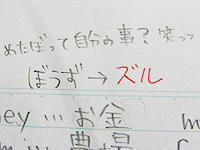 めたぼって自分の事？笑っ
ぼうず→ズル
ey…お金 m